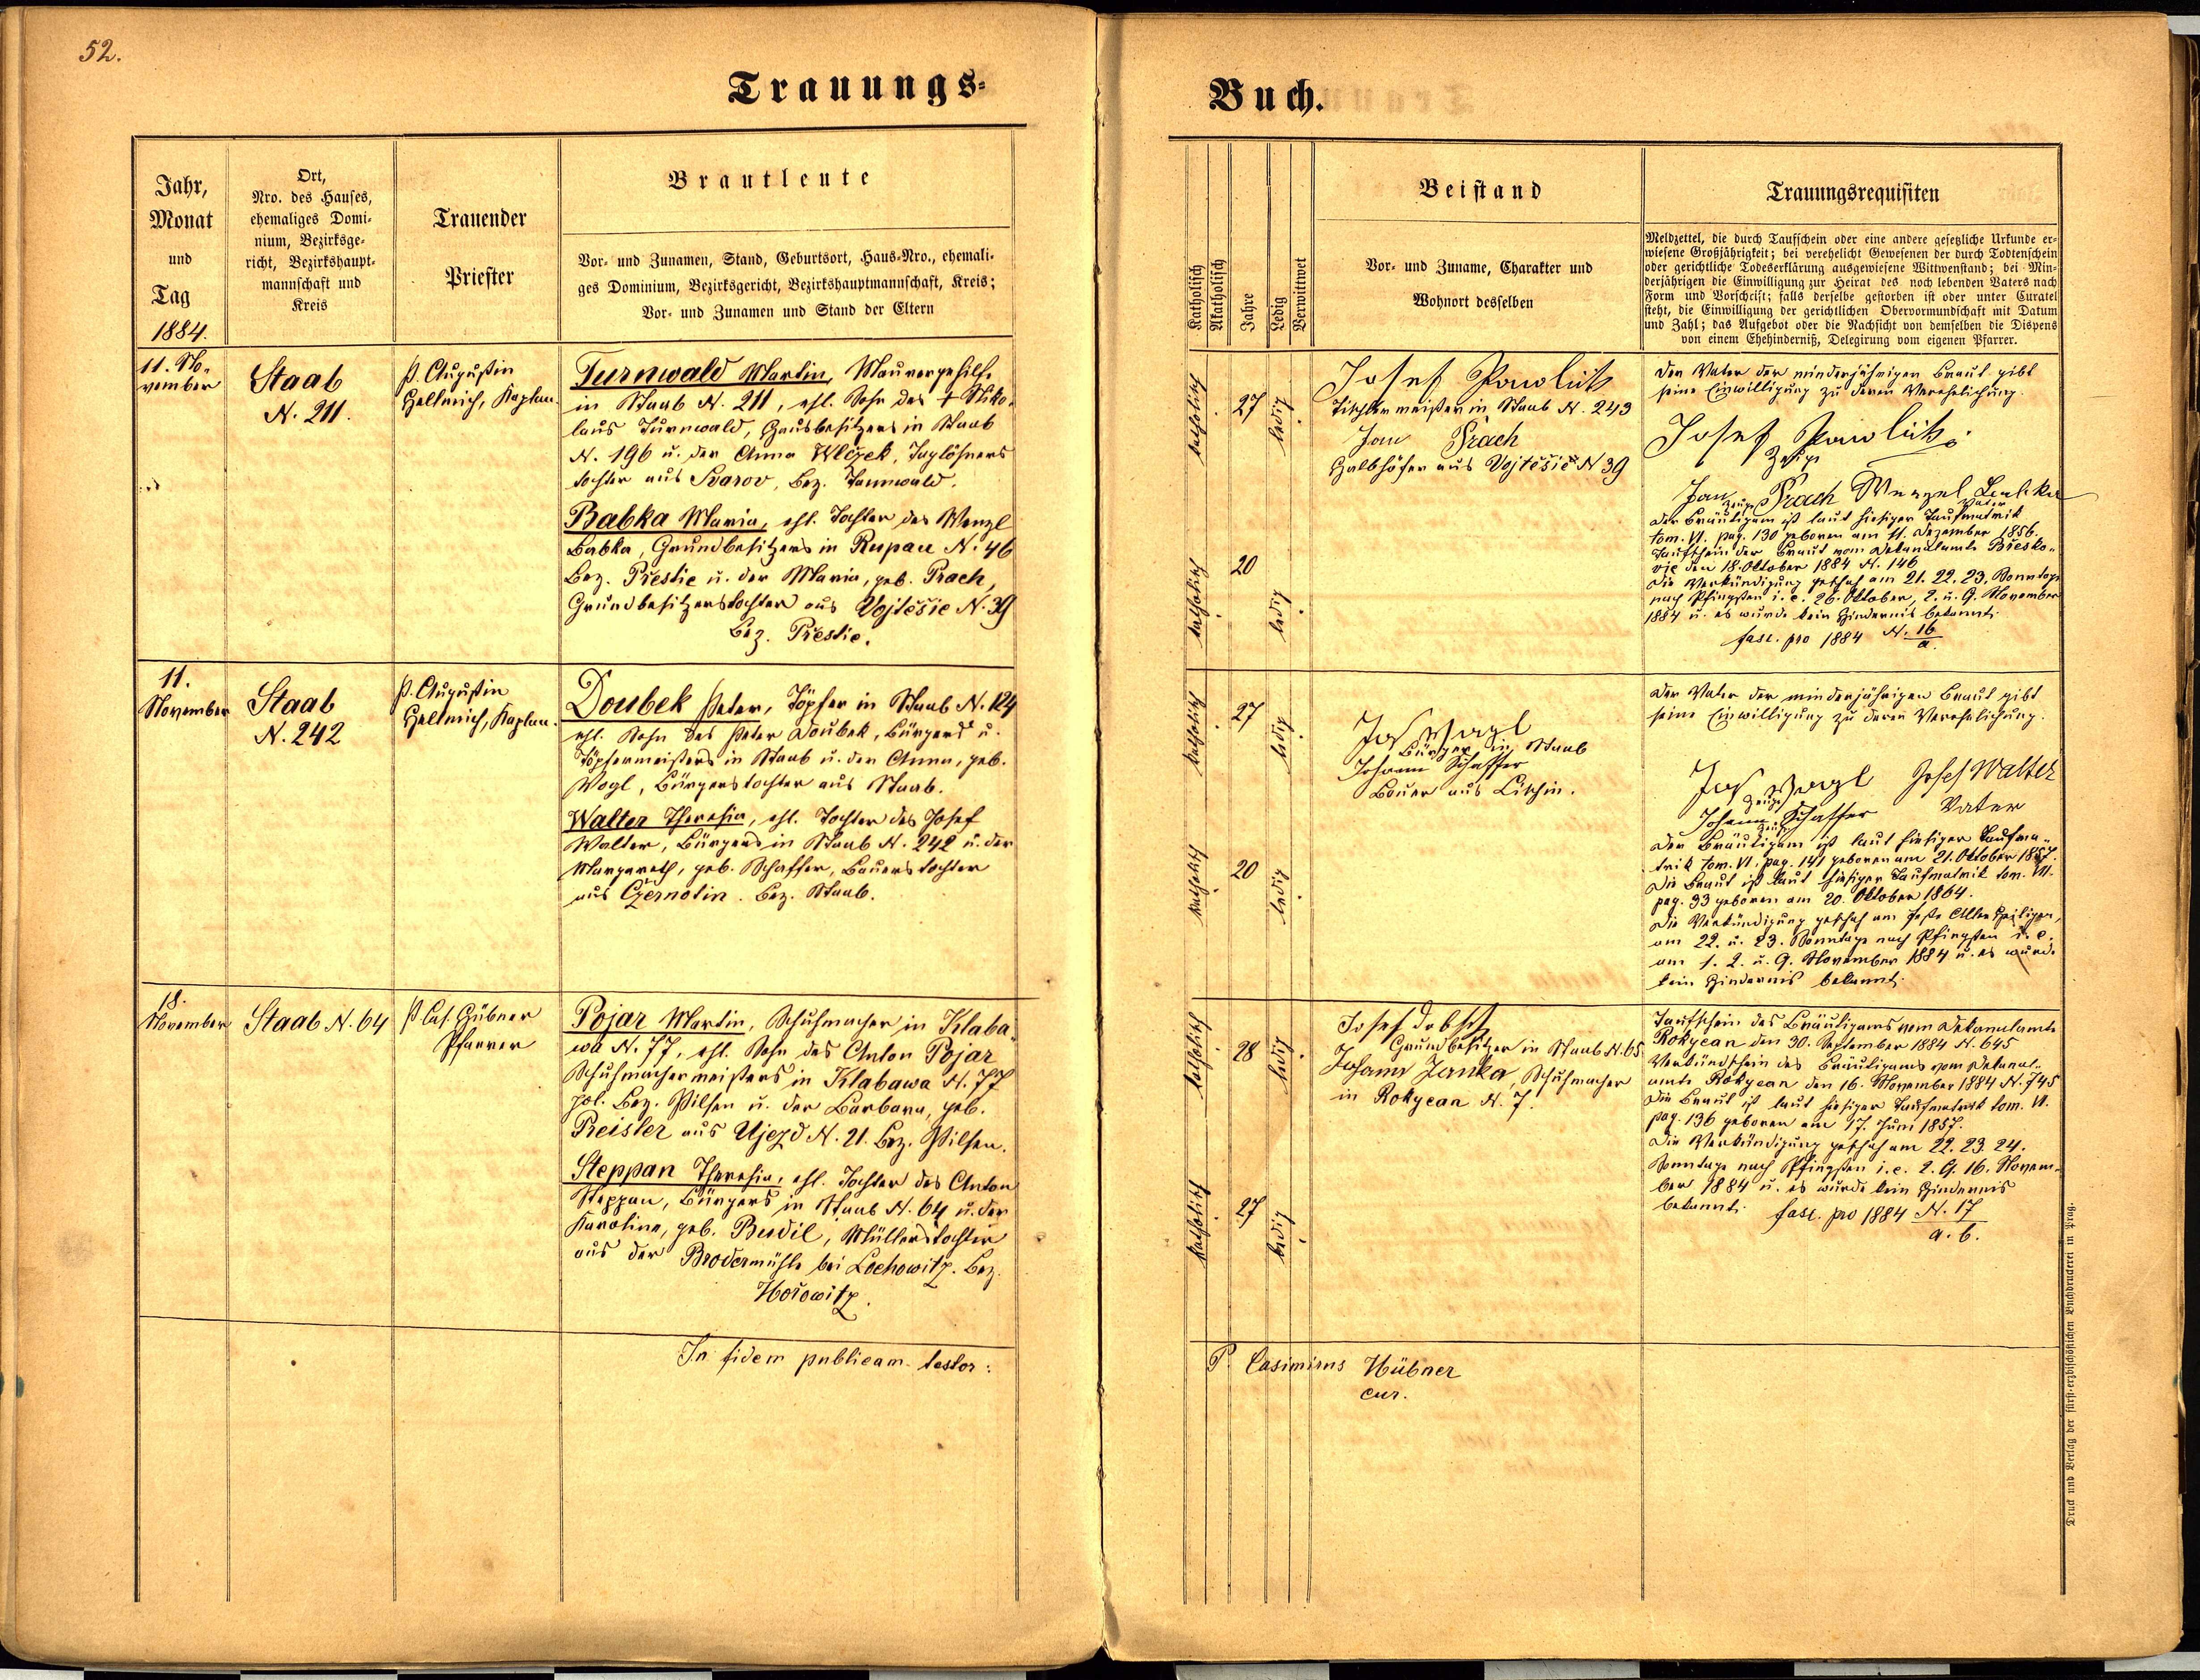 52.
Trauungs-
Buch.
Jahr,
Monat
und
Tag
1884.
Ort,
Nro. des Hauses,
ehemaliges Domi-
nium, Bezirksge-
richt, Bezirkshaupt-
mannschaft und
Kreis
Trauender
Priester
Brautleute
Vor- und Zunamen, Stand, Geburtsort, Haus-Nro., ehemali-
ges Dominium, Bezirksgericht, Bezirkshauptmannschaft, Kreis;
Vor- und Zunamen und Stand der Eltern
Katholisch
Akatholisch
Jahre
Ledig
Verwittwet
Beistand
Vor- und Zuname, Charakter und
Wohnort desselben
Trauungsrequisiten
Meldzettel, die durch Taufschein oder eine andere gesetzliche Urkunde er-
wiesene Großjährigkeit; bei verehelicht Gewesenen der durch Todtenschein
oder gerichtliche Todeserklärung ausgewiesene Wittwenstand; bei Min-
derjährigen die Einwilligung zur Heirat des noch lebenden Vaters nach
Form und Vorschrift; falls derselbe gestorben ist oder unter Curatel
steht, die Einwilligung der gerichtlichen Obervormundschaft mit Datum
und Zahl; das Aufgebot oder die Nachsicht von demselben die Dispens
von einem Ehehinderniß, Delegirung vom eigenen Pfarrer.
11. No-
vember
Staab
N. 211.
P. Augustin
Hellmich, Kaplan.
Turnwald Martin, Maurergehilfe
in Staab N. 211, ehl. Sohn des † Niko-
laus Turnwald, Hausbesitzers in Staab
N. 196 u. der Anna Wlczek, Taglöhners
tochter aus Svarov, Bez. Tannwald.
Babka Maria, ehl. Tochter des Wenzl
Babka, Grundbesitzers in Rupau N. 46
Bez. Přestic u. der Maria, geb. Prach,
Grundbesitzerstochter aus Vojtěšic N. 39
Bez. Přestic.
katholisch
27
ledig
katholisch
20
ledig
Josef Pawlik
Tischlermeister in Staab N. 243
Jan Prach
Halbhöfer aus Vojtěšic N 39
Der Vater der minderjährigen Braut gibt
seine Einwilligung zu deren Verehelichung.
Josef Pawlik
Zeuge
Jan Prach Wenzel
Zeuge Vater
Der Bräutigam ist laut hiesiger Taufmatrik
tom. VI. pag. 130 geboren am 11. Dezember 1856.
Taufschein der Braut vom Dekanalamte Břesko-
vic den 18. Oktober 1884 N. 146
Die Verkündigung geschah am 21. 22. 23. Sonntage
nach Pfingsten i. e. 26. Oktober, 2. u. 9. November
1884 u. es wurde kein Hindernis bekannt.
fasc. pro 1884 N. 16
a.
11.
November
Staab
N. 242
P. Augustin
Hellmich, Kaplan.
Doubek Peter, Töpfer in Staab N. 124
ehl. Sohn des Peter Doubek, Bürgers u.
Töpfermeisters in Staab u. der Anna, geb.
Vogl, Bürgerstochter aus Staab.
Walter Theresia, ehl. Tochter des Josef
Walter, Bürgers in Staab N. 242 u. der
Margareth, geb. Schaffer, Bauerstochter
aus Czernotin. Bez. Staab.
katholisch
27
ledig
katholisch
20
ledig
Jos Vogl
Bürger in Staab
Johann Schaffer
Bauer aus
Der Vater der minderjährigen Braut gibt
seine Einwilligung zu deren Verehelichung.
Jos Vogl Josef Walter
Zeuge Vater
Johann Schaffer
Zeuge
Der Bräutigam ist laut hiesiger Taufma-
trik tom. VI. pag. 141 geboren am 21. Oktober 1857.
Die Braut ist laut hiesiger Taufmatrik tom. VII.
pag. 93 geboren am 20. Oktober 1864.
Die Verkündigung geschah am Feste Aller Heiligen,
am 22. u. 23. Sonntage nach Pfingsten i. e.
am 1. 2. u. 9. November 1884 u. es wurde
kein Hindernis bekannt.
18.
November
Staab N. 64
P. Cas. Hübner
Pfarrer
Pojar Martin, Schuhmacher in Klaba-
wa N. 77, ehl. Sohn des Anton Pojar
Schuhmachermeisters in Klabawa N. 77
pol. Bez. Pilsen u. der Barbara, geb.
Preisler aus Ujezd N. 21. Bez. Pilsen.
Steppan Theresia, ehl. Tochter des Anton
Steppan, Bürgers in Staab N. 64 u. der
Karoline, geb. Budil, Müllerstochter
aus der Brodermühle bei Lochowitz. Bez.
Hořowitz.
katholisch
28
ledig
katholisch
27
ledig
Josef
Grundbesitzer in Staab N. 65
Johann Janka, Schuhmacher
in Rokycan N. 7.
Taufschein des Bräutigams vom Dekanalamte
Rokycan den 30. September 1884 N. 645
Verkündschein des Bräutigams vom Dekanal-
amte Rokycan den 16. November 1884 N. 745
Die Braut ist laut hiesiger Taufmatrik tom. VI.
pag. 136 geboren am 17. Juni 1857.
Die Verkündigung geschah am 22. 23. 24.
Sonntage nach Pfingsten i. e. 2. 9. 16. Novem-
ber 1884 u. es wurde kein Hindernis
bekannt. fasc. pro 1884 N. 17
a. b.
In fidem publicam testor:
P. Casimirus Hübner
cur.
Druck und Verlag der fürst-erzbischöflichen Buchdruckerei in Prag.